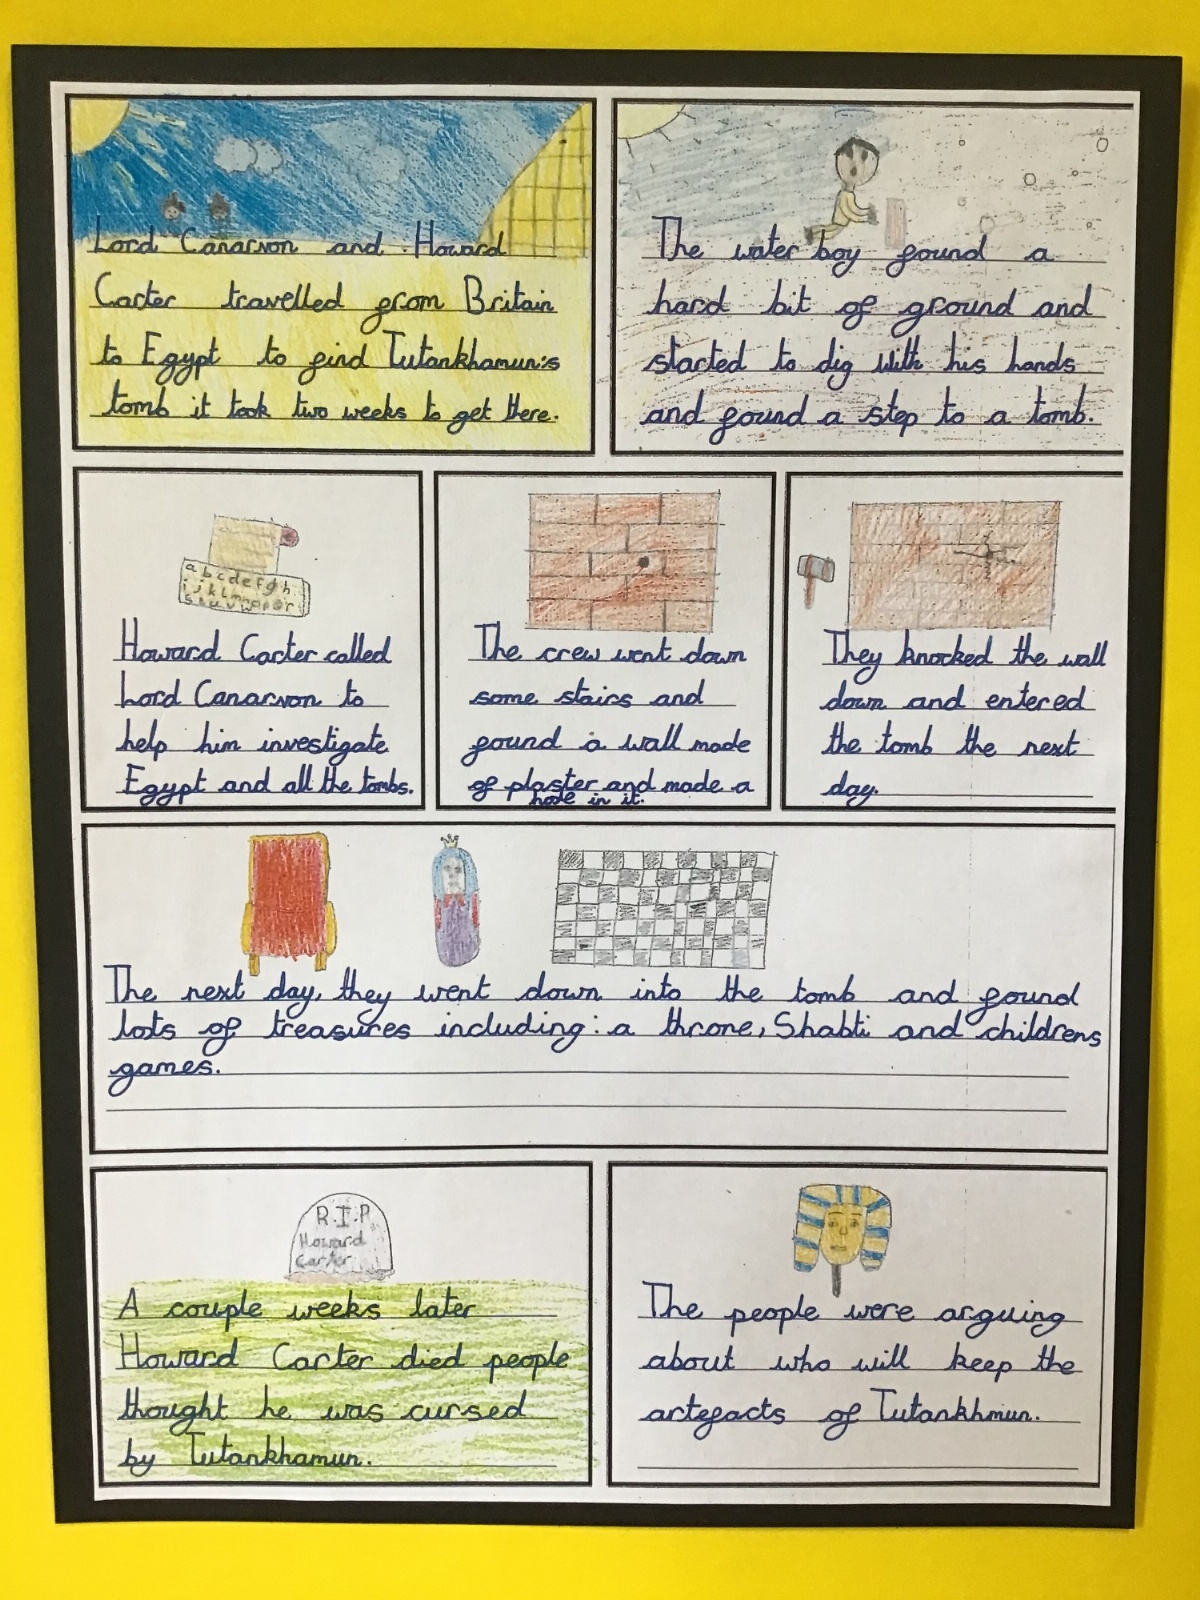 Lord Canarvon and Howard
Carter travelled from Britain
to Egypt to find Tutankhamun's
tomb it took two weeks to get there.
The water boy found a
hard bit of ground and
started to dig with his hands
and found a step to a tomb.
a b c d e f g h
i j k l m n o p q r
s t u v w
Howard Carter called
Lord Canarvon to
help him investigate
Egypt and all the tombs.
The crew went down
some stairs and
found a wall made
of plaster and made a
hole in it.
They knocked the wall
down and entered
the tomb the next
day.
The next day, they went down into the tomb and found
lots of treasures including: a throne, Shabti and childrens
games.
R.I.P
Howard
Carter
A couple weeks later
Howard Carter died people
thought he was cursed
by Tutankhamun.
The people were arguing
about who will keep the
artefacts of Tutankhmun.